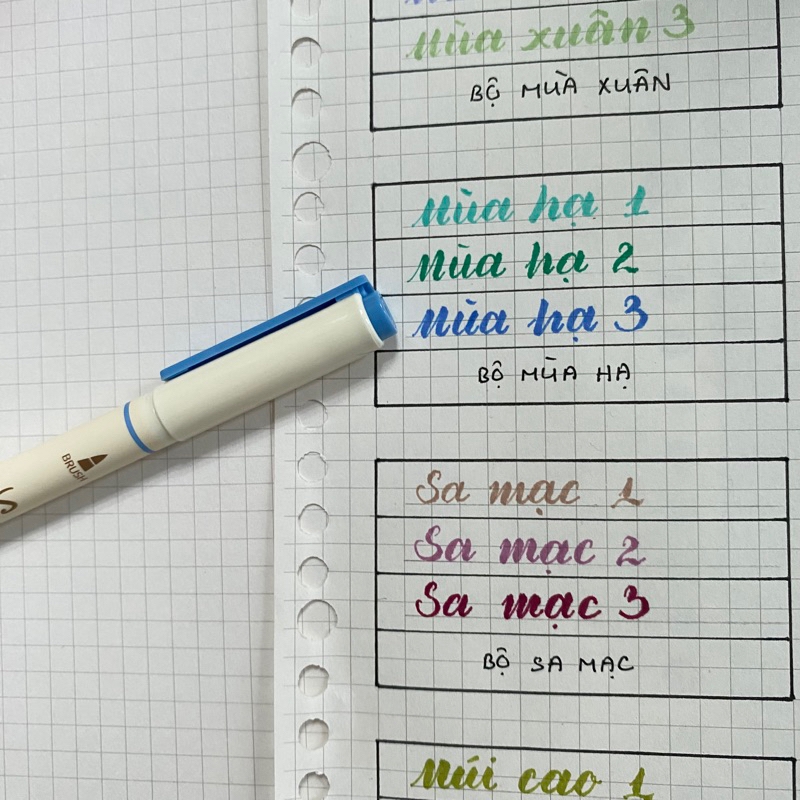 Mùa xuân 3
BỘ MÙA XUÂN
Mùa hạ 1
Mùa hạ 2
Mùa hạ 3
BỘ MÙA HẠ
BRUSH
Sa mạc 1
Sa mạc 2
Sa mạc 3
BỘ SA MẠC
Núi cao 1